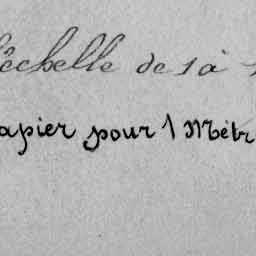 l'échelle de 1 à
papier pour 1 Mètr